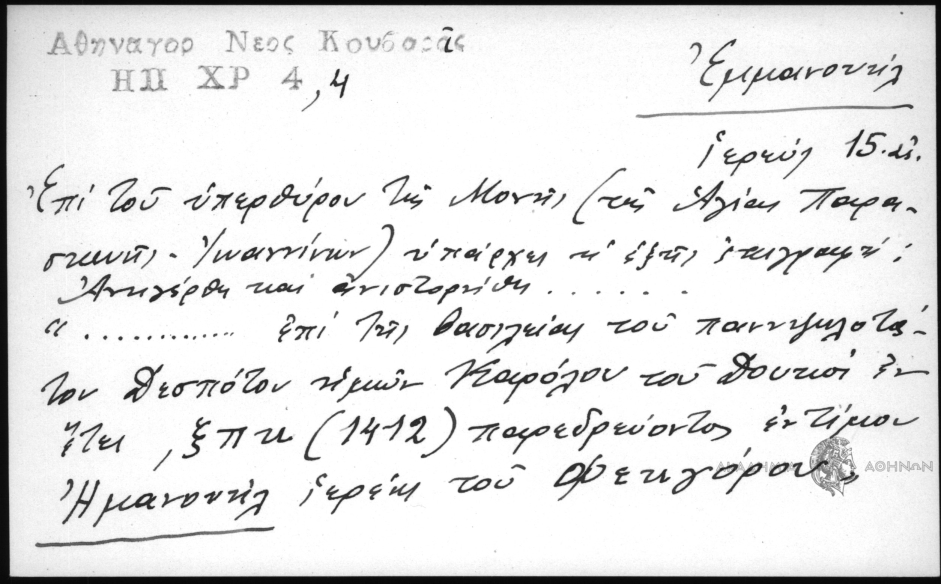 Αθηναγορ Νεος Κουβαρᾶς
ΗΠ ΧΡ 4,4
Ἐμμανουήλ
ἱερεύς 15. αἰ.
Ἐπί τοῦ ὑπερθύρου τῆς Μονῆς (τῆς Ἁγίας Παρα-
σκευῆς - Ἰωαννίνων) ὑπάρχει ἡ ἑξῆς ἐπιγραφή:
Ἀνηγέρθη καί ἀνιστορήθη . . . . . . .
" ............. ἐπί τῆς βασιλείας τοῦ πανυψηλοτά-
του Δεσπότου ἡμῶν Καρόλου τοῦ Δουκός ἐν
ἔτει ,ϛπκ (1412) παρεδρεύοντος ἐντίμου
Ἠμανουήλ ἱερέως τοῦ
ΑΚΑΔΗΜΙΑ ΑΘΗΝΩΝ